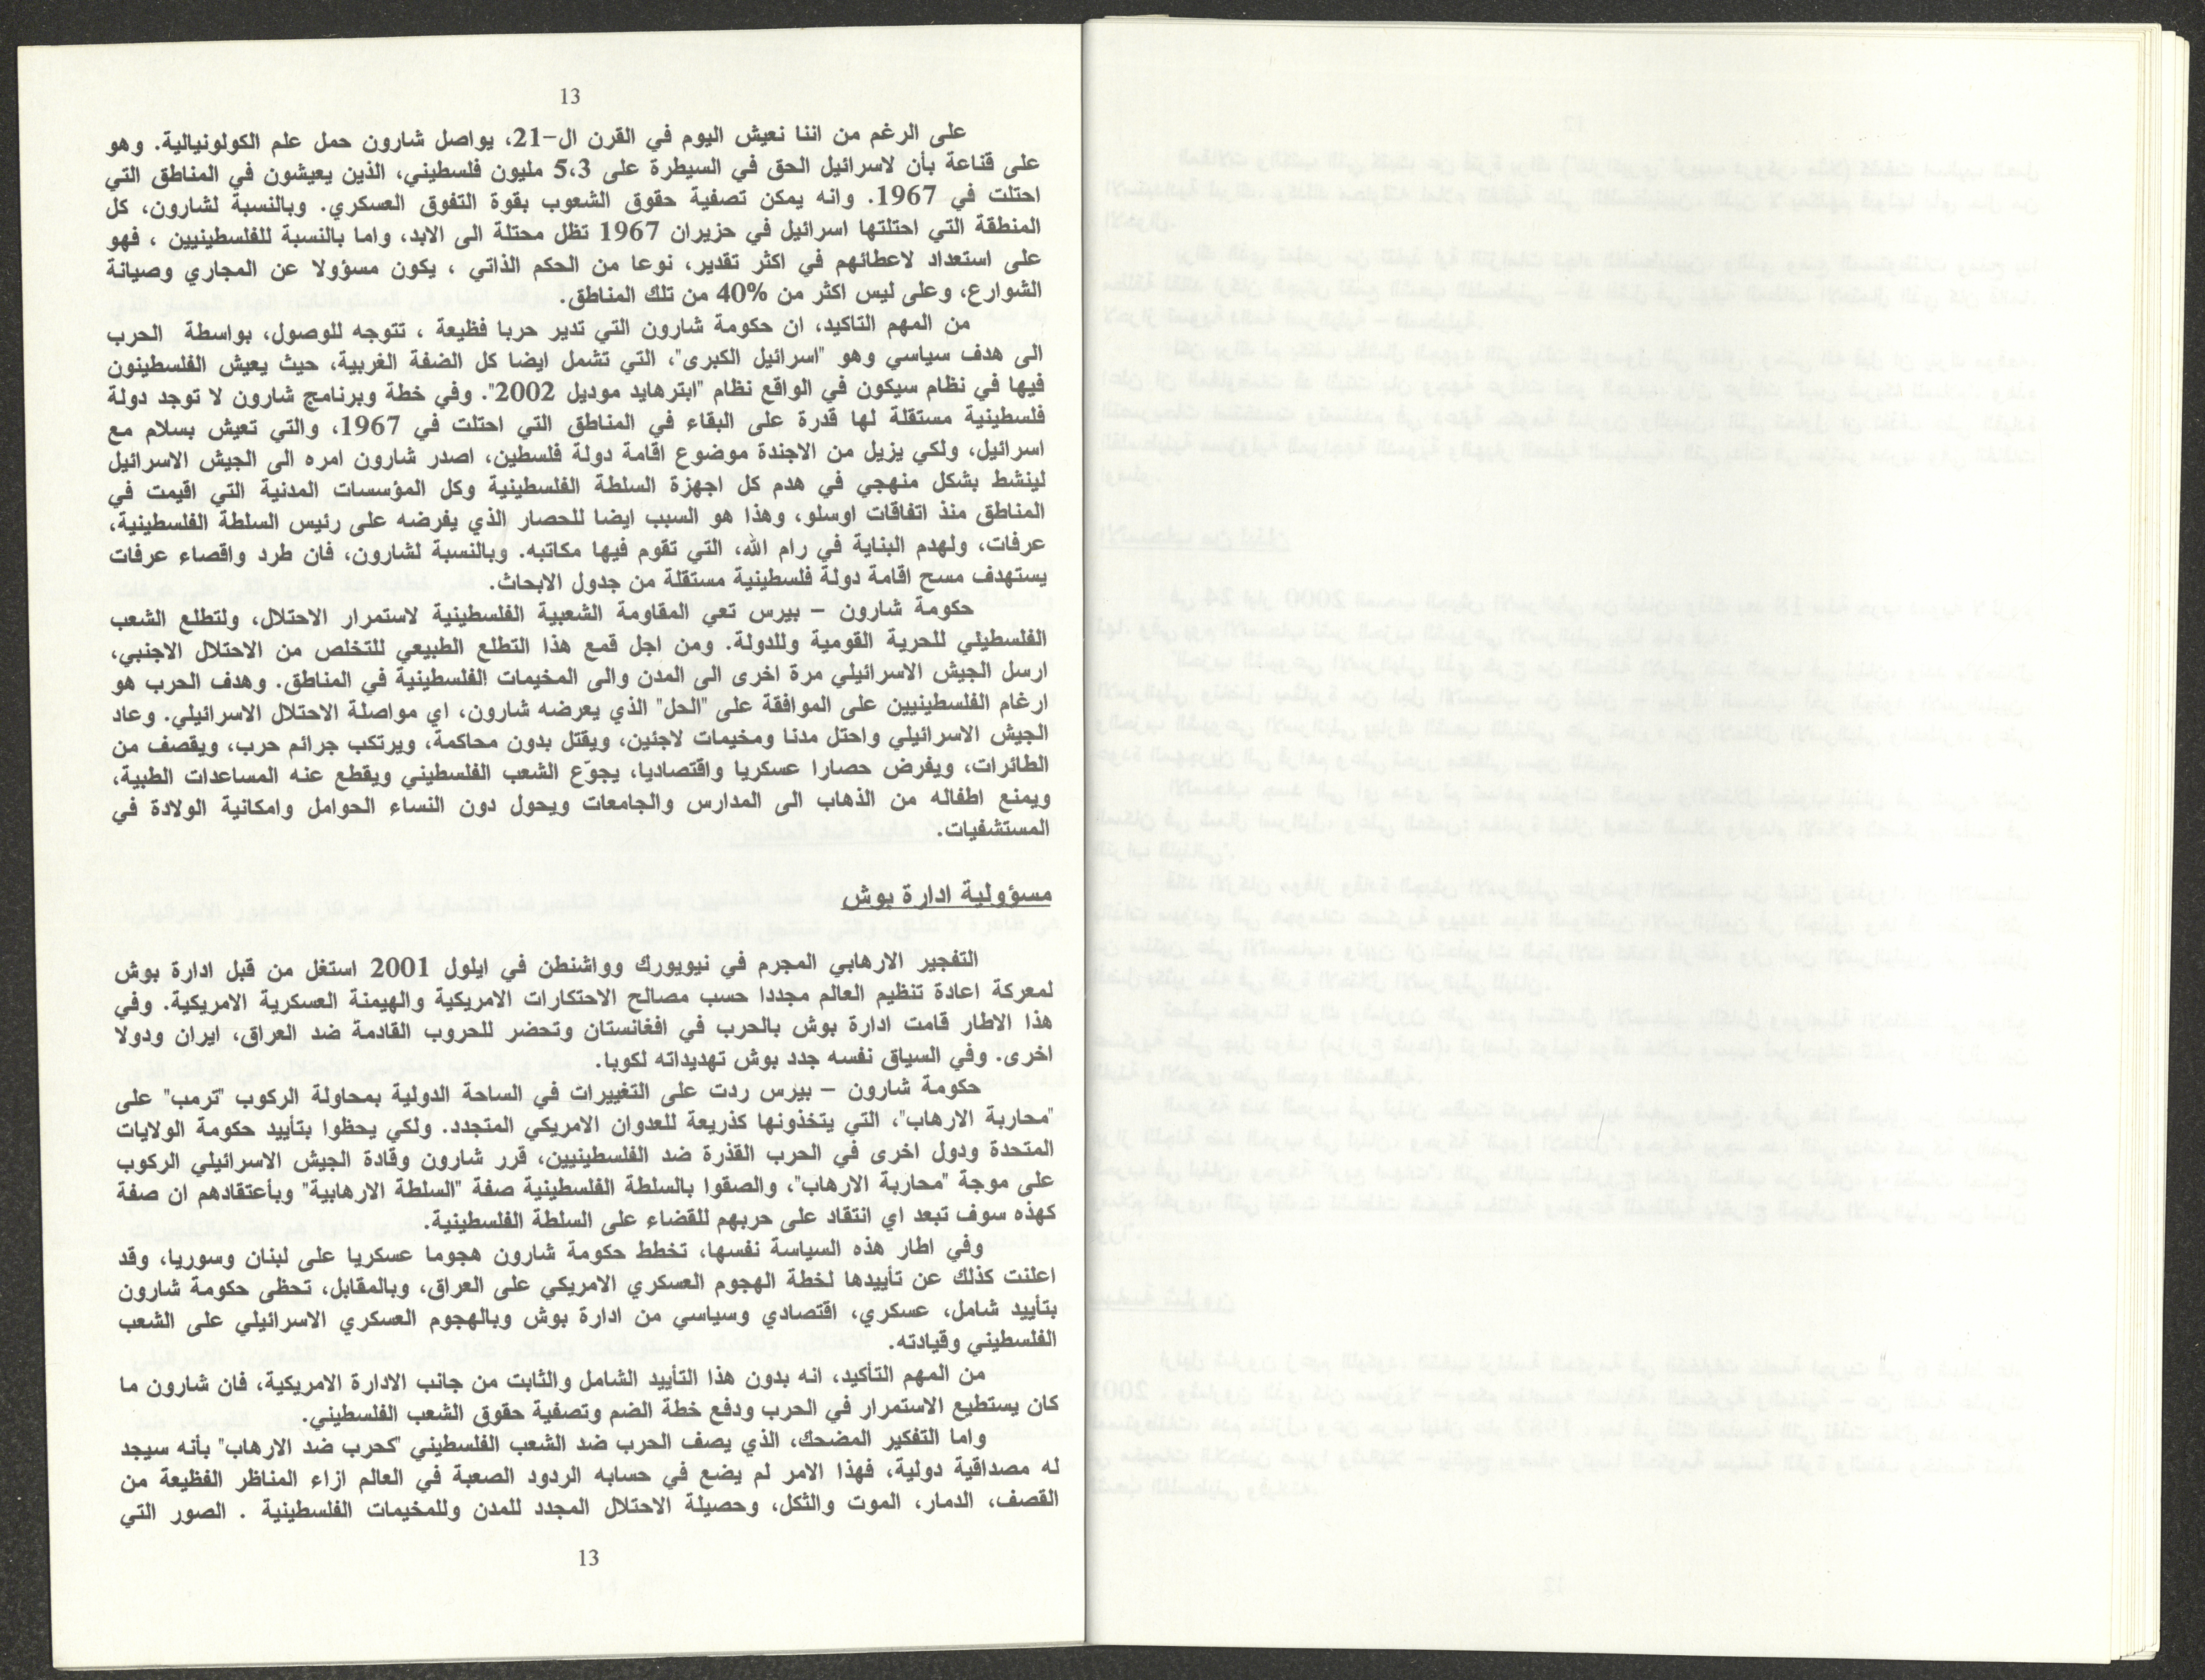 13
على الرغم من اننا نعيش اليوم في القرن ال-21، يواصل شارون حمل علم الكولونيالية. وهو
على قناعة بأن لاسرائيل الحق في السيطرة على 5،3 مليون فلسطيني، الذين يعيشون في المناطق التي
احتلت في 1967. وانه يمكن تصفية حقوق الشعوب بقوة التفوق العسكري. وبالنسبة لشارون، كل
المنطقة التي احتلتها اسرائيل في حزيران 1967 تظل محتلة الى الابد، واما بالنسبة للفلسطينيين ، فهو
على استعداد لاعطائهم في اكثر تقدير، نوعا من الحكم الذاتي ، يكون مسؤولا عن المجاري وصيانة
الشوارع، وعلى ليس اكثر من 40% من تلك المناطق.
من المهم التاكيد، ان حكومة شارون التي تدير حربا فظيعة ، تتوجه للوصول، بواسطة الحرب
الى هدف سياسي وهو "اسرائيل الكبرى"، التي تشمل ايضا كل الضفة الغربية، حيث يعيش الفلسطينون
فيها في نظام سيكون في الواقع نظام "ابترهايد موديل 2002". وفي خطة وبرنامج شارون لا توجد دولة
فلسطينية مستقلة لها قدرة على البقاء في المناطق التي احتلت في 1967، والتي تعيش بسلام مع
اسرائيل، ولكي يزيل من الاجندة موضوع اقامة دولة فلسطين، اصدر شارون امره الى الجيش الاسرائيل
لينشط بشكل منهجي في هدم كل اجهزة السلطة الفلسطينية وكل المؤسسات المدنية التي اقيمت في
المناطق منذ اتفاقات اوسلو، وهذا هو السبب ايضا للحصار الذي يفرضه على رئيس السلطة الفلسطينية،
عرفات، ولهدم البناية في رام الله، التي تقوم فيها مكاتبه. وبالنسبة لشارون، فان طرد واقصاء عرفات
يستهدف مسح اقامة دولة فلسطينية مستقلة من جدول الابحاث.
حكومة شارون – بيرس تعي المقاومة الشعبية الفلسطينية لاستمرار الاحتلال، ولتطلع الشعب
الفلسطيني للحرية القومية وللدولة. ومن اجل قمع هذا التطلع الطبيعي للتخلص من الاحتلال الاجنبي،
ارسل الجيش الاسرائيلي مرة اخرى الى المدن والى المخيمات الفلسطينية في المناطق. وهدف الحرب هو
ارغام الفلسطينيين على الموافقة على "الحل" الذي يعرضه شارون، اي مواصلة الاحتلال الاسرائيلي. وعاد
الجيش الاسرائيلي واحتل مدنا ومخيمات لاجئين، ويقتل بدون محاكمة، ويرتكب جرائم حرب، ويقصف من
الطائرات، ويفرض حصارا عسكريا واقتصاديا، يجوّع الشعب الفلسطيني ويقطع عنه المساعدات الطبية،
ويمنع اطفاله من الذهاب الى المدارس والجامعات ويحول دون النساء الحوامل وامكانية الولادة في
المستشفيات.
مسؤولية ادارة بوش
التفجير الارهابي المجرم في نيويورك وواشنطن في ايلول 2001 استغل من قبل ادارة بوش
لمعركة اعادة تنظيم العالم مجددا حسب مصالح الاحتكارات الامريكية والهيمنة العسكرية الامريكية. وفي
هذا الاطار قامت ادارة بوش بالحرب في افغانستان وتحضر للحروب القادمة ضد العراق، ايران ودولا
اخرى. وفي السياق نفسه جدد بوش تهديداته لكوبا.
حكومة شارون – بيرس ردت على التغييرات في الساحة الدولية بمحاولة الركوب "ترمب" على
"محاربة الارهاب"، التي يتخذونها كذريعة للعدوان الامريكي المتجدد. ولكي يحظوا بتأييد حكومة الولايات
المتحدة ودول اخرى في الحرب القذرة ضد الفلسطينيين، قرر شارون وقادة الجيش الاسرائيلي الركوب
على موجة "محاربة الارهاب"، والصقوا بالسلطة الفلسطينية صفة "السلطة الارهابية" وبأعتقادهم ان صفة
كهذه سوف تبعد اي انتقاد على حربهم للقضاء على السلطة الفلسطينية.
وفي اطار هذه السياسة نفسها، تخطط حكومة شارون هجوما عسكريا على لبنان وسوريا، وقد
اعلنت كذلك عن تأييدها لخطة الهجوم العسكري الامريكي على العراق، وبالمقابل، تحظى حكومة شارون
بتأييد شامل، عسكري، اقتصادي وسياسي من ادارة بوش وبالهجوم العسكري الاسرائيلي على الشعب
الفلسطيني وقيادته.
من المهم التأكيد، انه بدون هذا التأييد الشامل والثابت من جانب الادارة الامريكية، فان شارون ما
كان يستطيع الاستمرار في الحرب ودفع خطة الضم وتصفية حقوق الشعب الفلسطيني.
واما التفكير المضحك، الذي يصف الحرب ضد الشعب الفلسطيني "كحرب ضد الارهاب" بأنه سيجد
له مصداقية دولية، فهذا الامر لم يضع في حسابه الردود الصعبة في العالم ازاء المناظر الفظيعة من
القصف، الدمار، الموت والثكل، وحصيلة الاحتلال المجدد للمدن وللمخيمات الفلسطينية . الصور التي
13